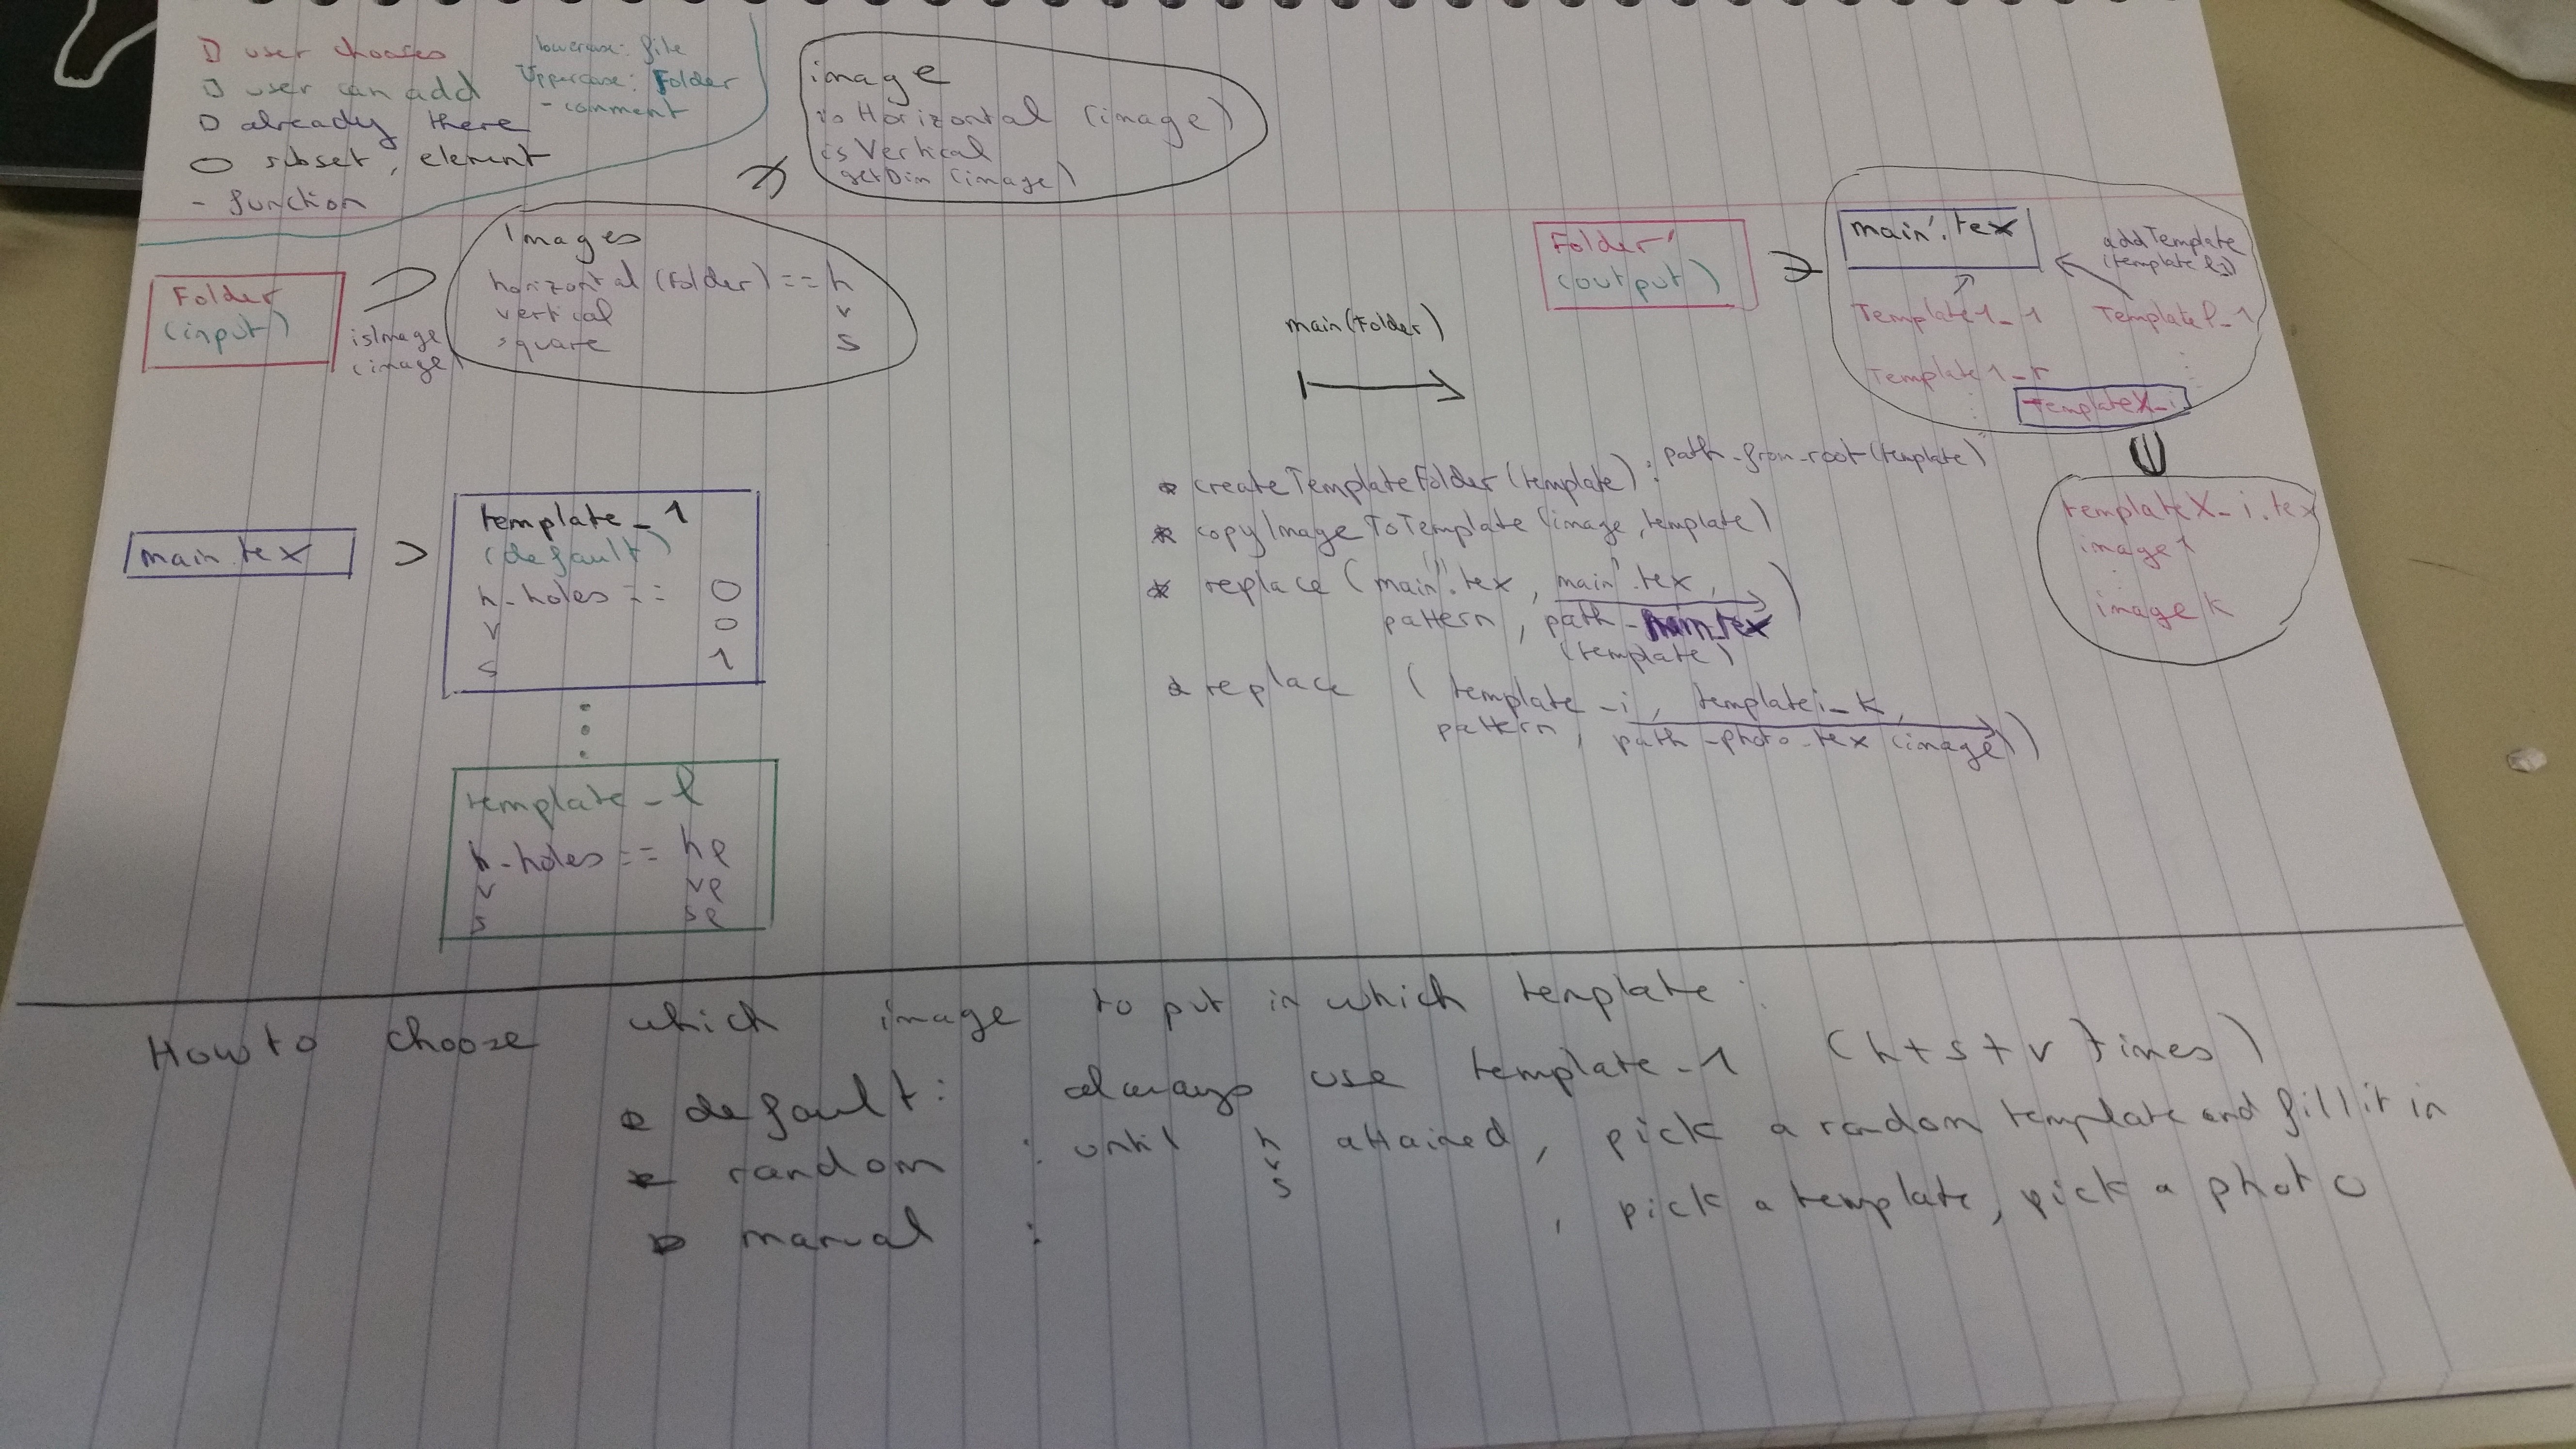 user chooses
user can add
already there
subset, element
- function
lowercase: file
Uppercase: Folder
- comment
image
isHorizontal (image)
isVertical
getDim (image)
Folder
(input)
isImage
(image)
Images
horizontal (Folder) == h
vertical v
square s
main.tex
template_1
(default)
h-holes == 0
v 0
s 1
template_l
h-holes == hl
v vl
s sl
main(Folder)
Folder'
(output)
main'.tex
addTemplate
Template1_1
Templatel_1
Template1_r
TemplateX_i
templateX_i.tex
image1
image k
* createTemplateFolder (template) : path_from_root(template)
* copyImageToTemplate (image, template)
* replace (main'.tex, main'.tex,
pattern, path_
(template)
* replace (template_i, templatei_k,
pattern, path_photo_tex (image))
How to choose which image to put in which template:
default: always use template_1 (h+s+v times)
random : until h attained, pick a random template and fill it in
v
s
manual : , pick a template, pick a photo